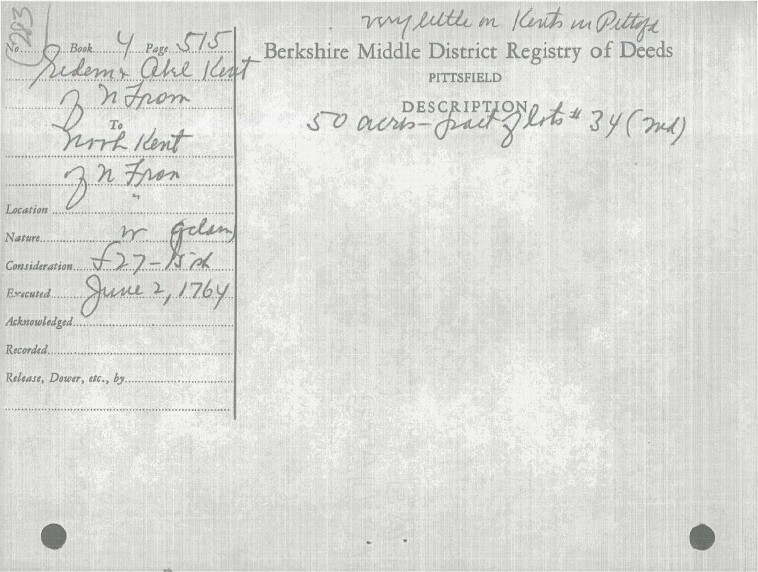 283
very little on Kents in Pittsfd
No. Book 4 Page 515
Berkshire Middle District Registry of Deeds
PITTSFIELD
Abel Kent
of N Fram
DESCRIPTION
50 acres - part of lots # 34 (2nd)
To
Noah Kent
of N Fram
Location "
Nature
Consideration £27-
Executed June 2, 1764
Acknowledged
Recorded
Release, Dower, etc., by